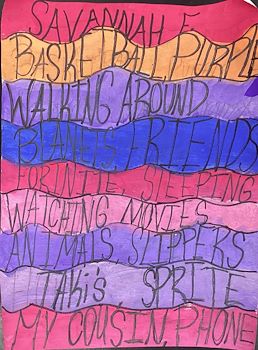 SAVANNAH F
BASKETBALL, PURPLE
WALKING AROUND
BLANETS, FRIENDS
FORTNITE, SLEEPING
WATCHING MOVIES
ANIMALS, SLIPPERS
TAKIS, SPRITE
MY COUSIN, PHONE